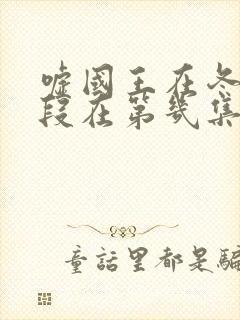 嘘國王在冬
段在第幾集
童話里都是騙